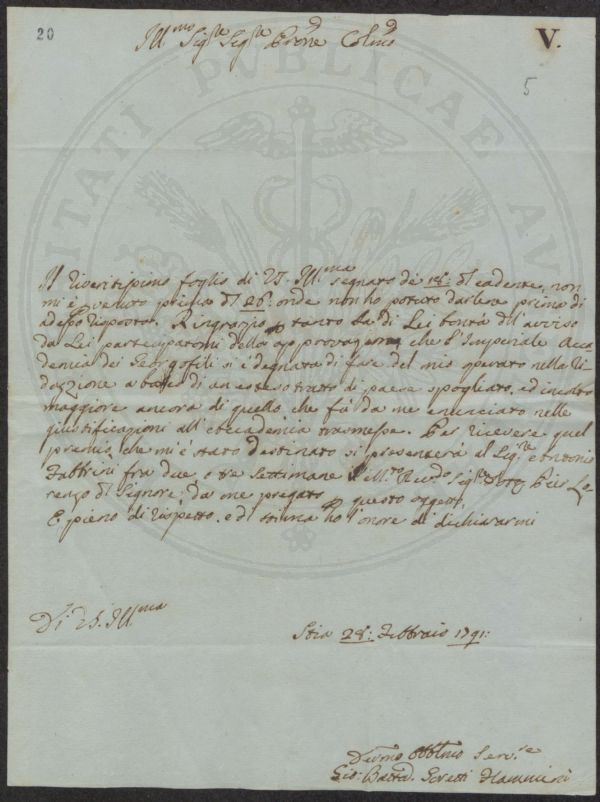 20
V.
5
Ill.mo Sig.re Sig.re P.rone Col.mo
PUBLICAE
Il riveritissimo foglio di VS. Ill.ma segnato de 18: del cadente, non
mi è venuto prima del 26: onde non ho potuto darlene prima di
adesso risposta. Ringrazio tanto la di Lei bontà dell'avviso
da Lei partecipatomi della approvazione che l'Imperiale Acca
demia dei Georgofili si è degnata di fare del mio operato nella ri
duzione a bosco di un esteso tratto di paese spogliato, ed incolto
maggiore ancora di quello, che fù da me enunciato nelle
giustificazioni all'Accademia trasmesse. Per ricevere quel
premio, che mi è stato destinato si presenterà al Sig.re Antonio
Fabbrini fra due o tre Settimane il M.to Rev.do Sig.re Pier Lo=
renzo del Signore, da me pregato per questo oggetto,
E pieno di rispetto, e di stima ho l'onore di dichiararmi
Di VS. Ill.ma
Stia 28: Febbraio 1791:
Dev.mo Obbl.mo Serv.re
Gio: Batta.